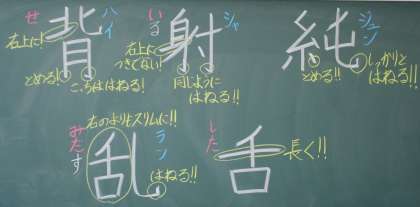 背
せ
ハイ
右上に!
とめる!!
こっちははねる!!
射
いる
シャ
右上に
つきでない!
同じように
はねる!!
純
ジュン
とめる!!
しっかりと
はねる!!
乱
みだす
ラン
右のよりもスリムに!!
はねる!!
舌
した
長く!!